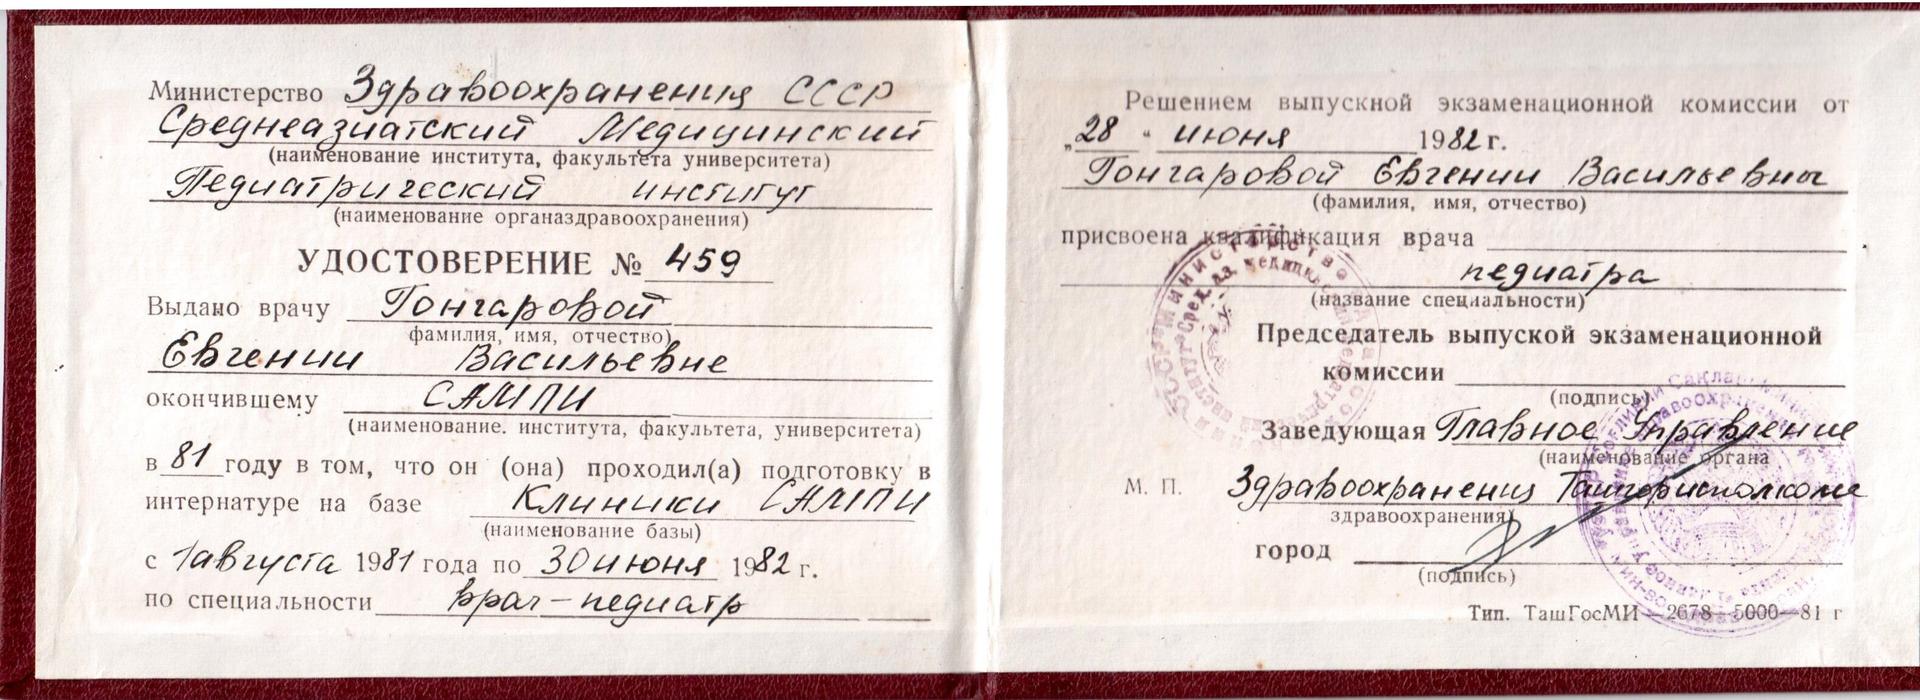 Министерство Здравоохранения СССР
Среднеазиатский Медицинский
(наименование института, факультета университета)
Педиатрический институт
(наименование органаздравоохранения)
УДОСТОВЕРЕНИЕ № 459
Выдано врачу Гончаровой
фамилия, имя, отчество)
Евгении Васильевне
окончившему САМПИ
(наименование. института, факультета, университета)
в 81 году в том, что он (она) проходил(а) подготовку в
интернатуре на базе Клиники САМПИ
(наименование базы)
с 1 августа 1981 года по 30 июня 1982 г.
по специальности врач-педиатр
Решением выпускной экзаменационной комиссии от
„28 " июня 1982 г.
Гончаровой Евгении Васильевны
(фамилия, имя, отчество)
присвоена квалификация врача
педиатра
(название специальности)
Председатель выпуской экзаменационной
комиссии
(подпись)
Заведующая Главное Управление
(наименование органа
М. П. Здравоохранения Ташгорисполкоме
здравоохранения)
город
(подпись)
Тип. ТашГосМИ—2678—5000—81 г